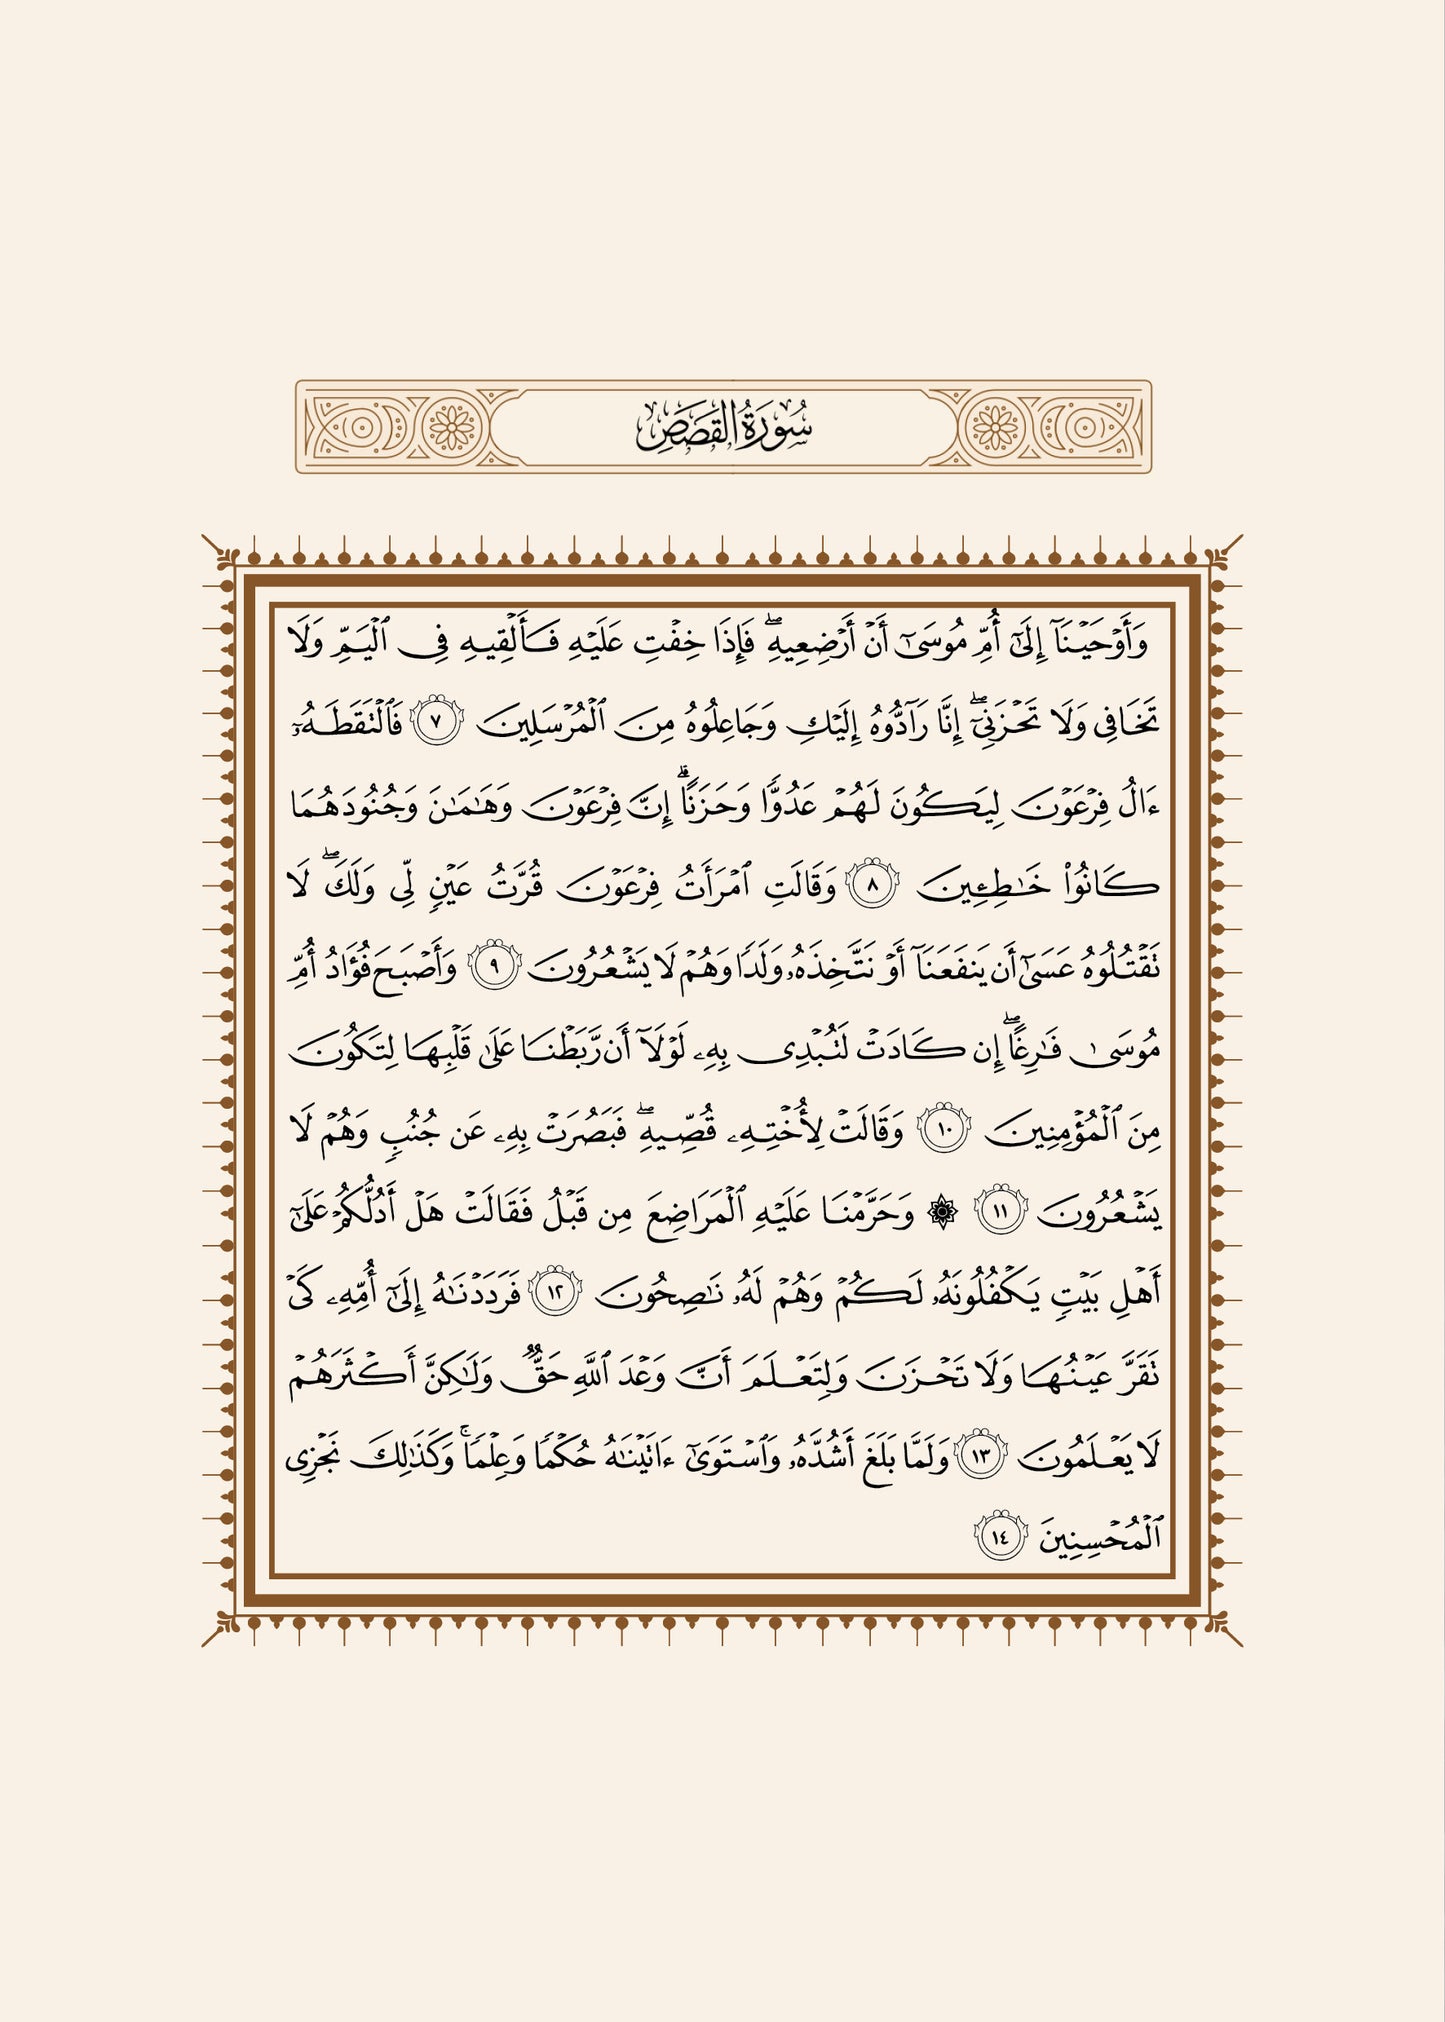 سُورَةُ القَصَصِ
وَأَوْحَيْنَآ إِلَىٰٓ أُمِّ مُوسَىٰٓ أَنْ أَرْضِعِيهِ ۖ فَإِذَا خِفْتِ عَلَيْهِ فَأَلْقِيهِ فِى ٱلْيَمِّ وَلَا
تَخَافِى وَلَا تَحْزَنِىٓ ۖ إِنَّا رَآدُّوهُ إِلَيْكِ وَجَاعِلُوهُ مِنَ ٱلْمُرْسَلِينَ ٧ فَٱلْتَقَطَهُۥٓ
ءَالُ فِرْعَوْنَ لِيَكُونَ لَهُمْ عَدُوًّا وَحَزَنًا ۗ إِنَّ فِرْعَوْنَ وَهَـٰمَـٰنَ وَجُنُودَهُمَا
كَانُوا۟ خَـٰطِـِٔينَ ٨ وَقَالَتِ ٱمْرَأَتُ فِرْعَوْنَ قُرَّتُ عَيْنٍ لِّى وَلَكَ ۖ لَا
تَقْتُلُوهُ عَسَىٰٓ أَن يَنفَعَنَآ أَوْ نَتَّخِذَهُۥ وَلَدًا وَهُمْ لَا يَشْعُرُونَ ٩ وَأَصْبَحَ فُؤَادُ أُمِّ
مُوسَىٰ فَـٰرِغًا ۖ إِن كَادَتْ لَتُبْدِى بِهِۦ لَوْلَآ أَن رَّبَطْنَا عَلَىٰ قَلْبِهَا لِتَكُونَ
مِنَ ٱلْمُؤْمِنِينَ ١٠ وَقَالَتْ لِأُخْتِهِۦ قُصِّيهِ ۖ فَبَصُرَتْ بِهِۦ عَن جُنُبٍ وَهُمْ لَا
يَشْعُرُونَ ١١ ۞ وَحَرَّمْنَا عَلَيْهِ ٱلْمَرَاضِعَ مِن قَبْلُ فَقَالَتْ هَلْ أَدُلُّكُمْ عَلَىٰٓ
أَهْلِ بَيْتٍ يَكْفُلُونَهُۥ لَكُمْ وَهُمْ لَهُۥ نَـٰصِحُونَ ١٢ فَرَدَدْنَـٰهُ إِلَىٰٓ أُمِّهِۦ كَىْ
تَقَرَّ عَيْنُهَا وَلَا تَحْزَنَ وَلِتَعْلَمَ أَنَّ وَعْدَ ٱللَّهِ حَقٌّ وَلَـٰكِنَّ أَكْثَرَهُمْ
لَا يَعْلَمُونَ ١٣ وَلَمَّا بَلَغَ أَشُدَّهُۥ وَٱسْتَوَىٰٓ ءَاتَيْنَـٰهُ حُكْمًا وَعِلْمًا ۚ وَكَذَٰلِكَ نَجْزِى
ٱلْمُحْسِنِينَ ١٤